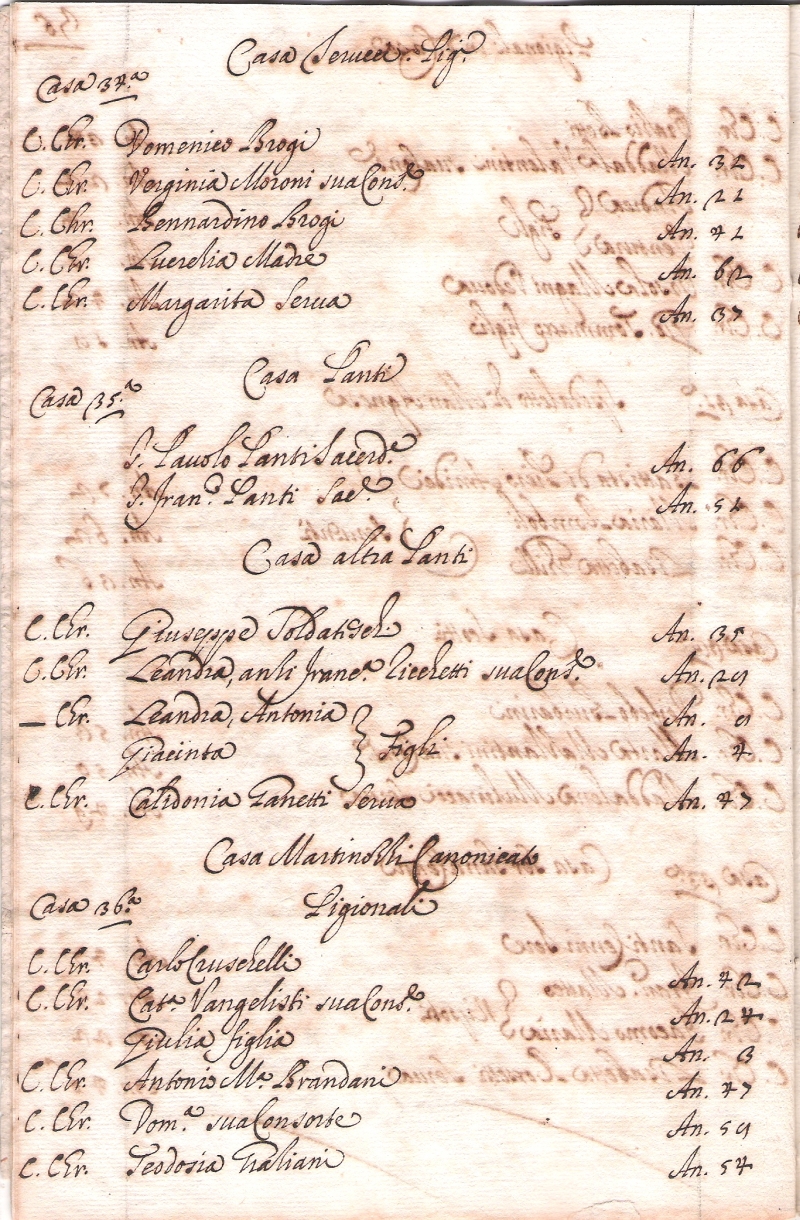 Casa Serucci. Pig.
Casa 34.a
C. Chr. Domenico Brogi An. 32
C. Chr. Verginia Moroni sua Cons.e An. 21
C. Chr. Bennardino Brogi An. 41
C. Chr. Lucretia Madre An. 62
C. Chr. Margarita Serua An. 37
Casa Santi
Casa 35.a
S. Pauolo Santi Sacerd.e An. 66
S. Fran.o Santi Sac.e An. 51
Casa altra Santi
C. Chr. Giuseppe An. 35
C. Chr. Leandra, anzi Franc.a Ricchetti sua Cons.e An. 29
— Chr. Leandra, Antonia An. 9
Giacinta } Figli An. 4
C. Chr. Calidonia Zanetti Serua An. 47
Casa Martinelli Canonicat
Casa 36.a Pigionali
C. Chr. Carlo Cruschelli An. 42
C. Chr. Cat.a Vangelisti sua Cons.e An. 24
Giulia figlia An. 3
C. Chr. Antonio M.a Brandani An. 47
C. Chr. Dom.a sua Consorte An. 59
C. Chr. Teodosia Galiani An. 54